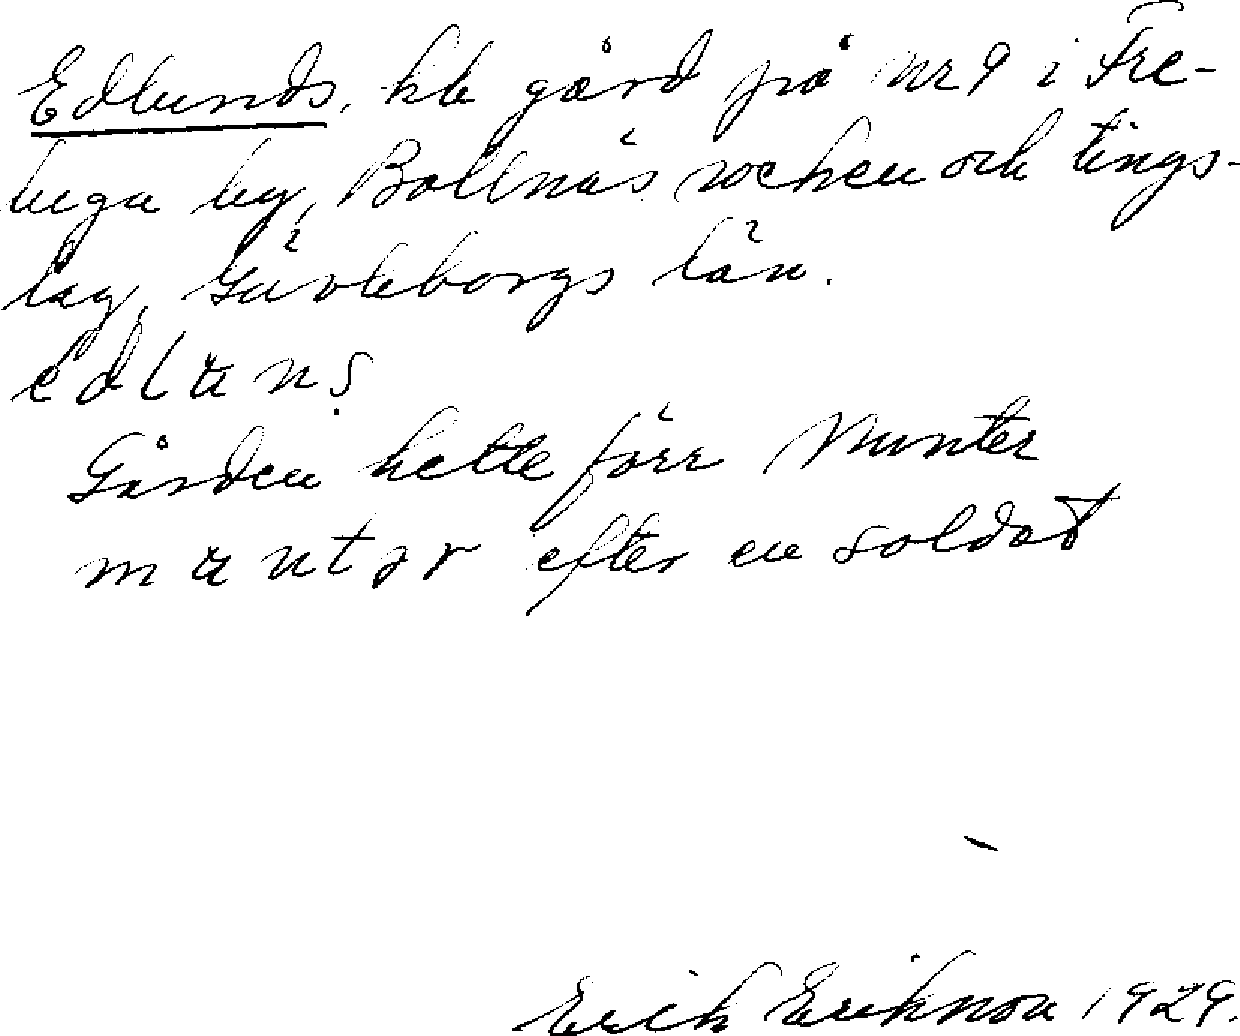 Edlunds, hb gård på nr 9 i Tre-
buga by, Bollnäs socken och tings-
lag, Gävleborgs län.
Gården hette förr Munter
efter en soldat
Erick Erikson 1929.